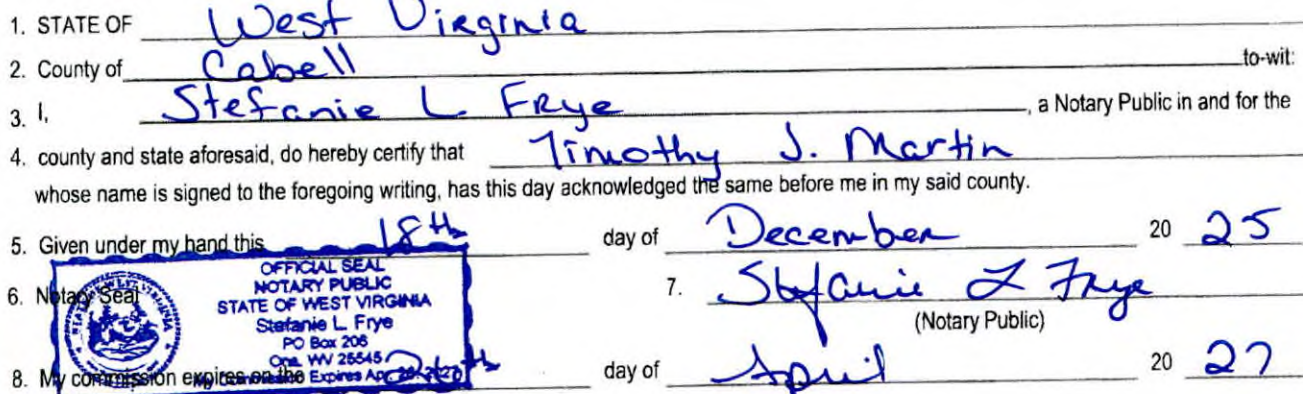 1. STATE OF West Virginia
2. County of Cabell to-wit:
3. I, Stefanie L Frye, a Notary Public in and for the
4. county and state aforesaid, do hereby certify that Timothy J. Martin
whose name is signed to the foregoing writing, has this day acknowledged the same before me in my said county.
5. Given under my hand this 18th day of December 20 25
6. Notary Seal
OFFICIAL SEAL
NOTARY PUBLIC
STATE OF WEST VIRGINIA
Stefanie L. Frye
PO Box 206
Ona, WV 25545
My Commission Expires Apr. 26, 2027
7. Stefanie L Frye
(Notary Public)
8. My commission expires on the 26th day of April 20 27